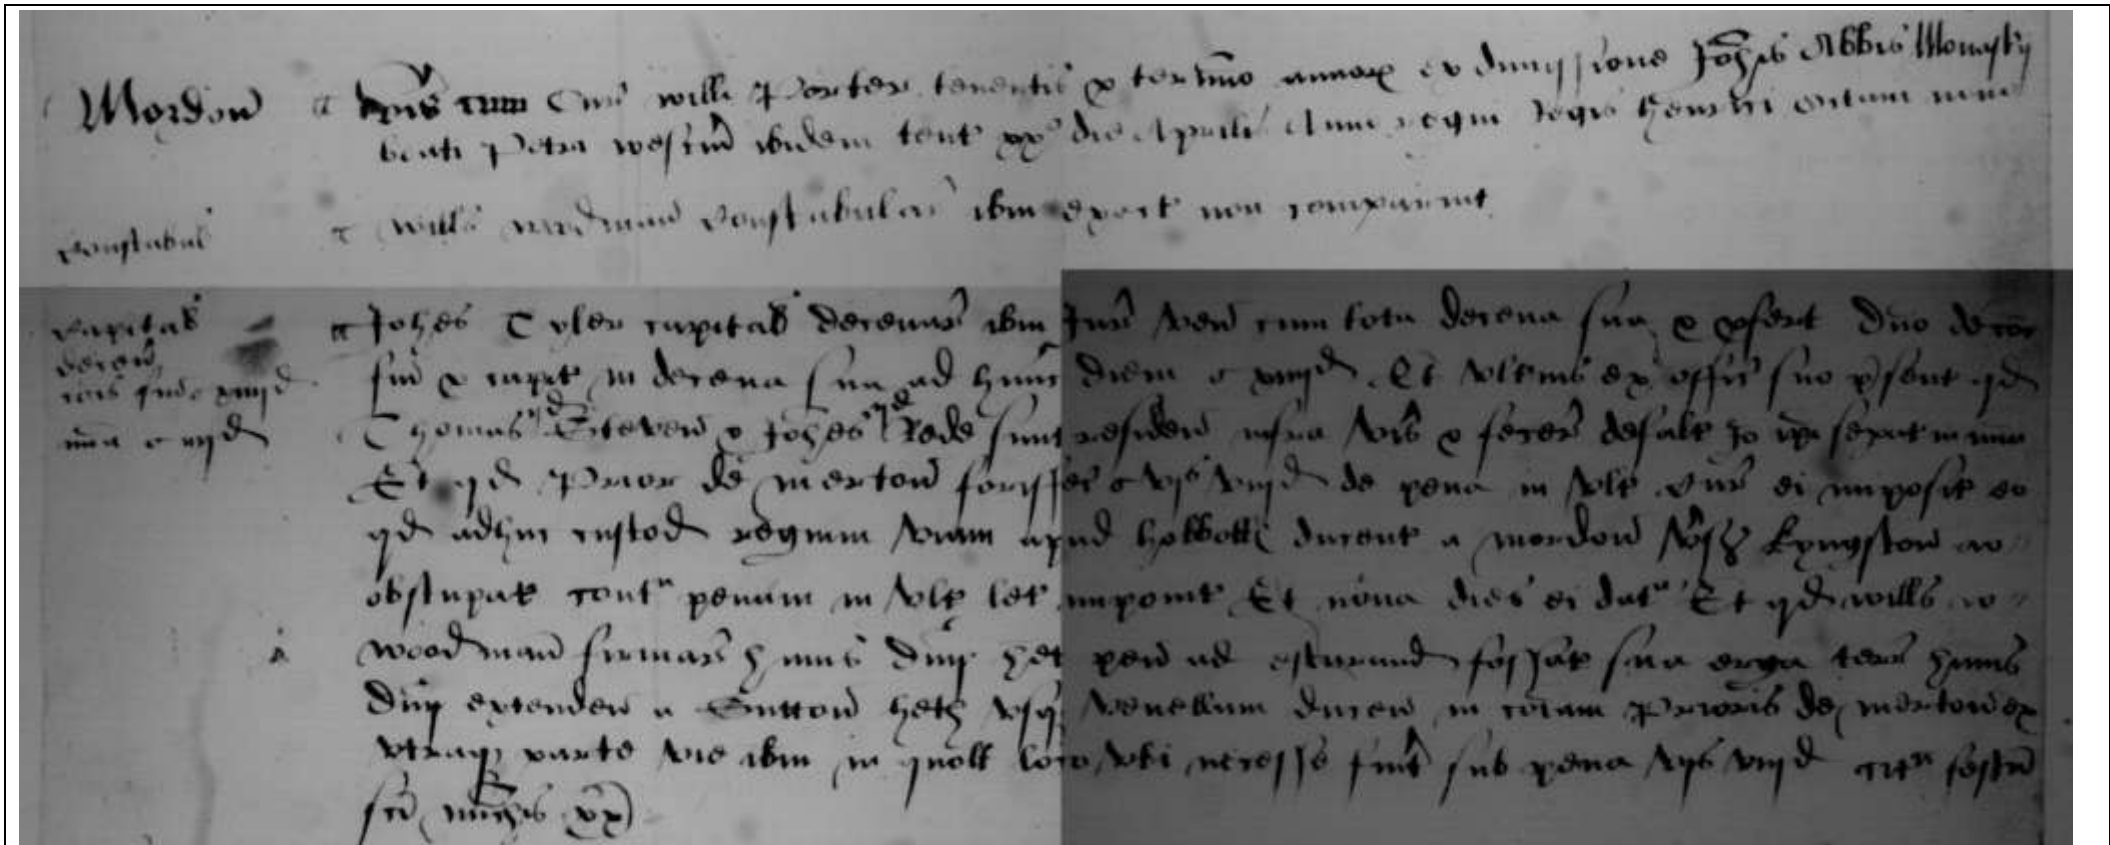 Mordon Vis cum Cur Willi Porter tenentis p termino annor ex dimissione Johis Abbis Monastij
beati Petri Westm ibidem tent xx die Aprilis Anno regni Regis Henrici octavi
Constabul Wills Wodman Constabular ibm exact non comparuit
Capital Johes Tyler capital decenar ibm Jur ven cum tota decena sua & p̱sent d no de coi
decen
cois fud xviijd fin & capit in decena sua ad hunc diem xviijd Et ult ius ex offic suo p̱sent qd
mia iiijd Thomas ijd Steven & Johes ijd Rede sunt residen infra vis & fecer defalt Io ipi sepat in mia
Et qd Prior de Merton forisfec vjs viijd de pena in ult Cur ei imposit eo
qd adhuc custod regiam viam apud Hobbott ducent a Mordon vsz Kyngston
obstupat cont penam in ult let imposit Et nova dies ei dat Et qd Wills
Woodman firmar hujus dnij het pen ad escurand fossat sua erga terr hujus
dnij extenden a Sutton heth usq venellam ducen in coiam Prioris de Merton ex
utraq parte vie ibm in quolt loco ubi necesse fuit sub pena vjs viijd cit a festm
sci Michis px